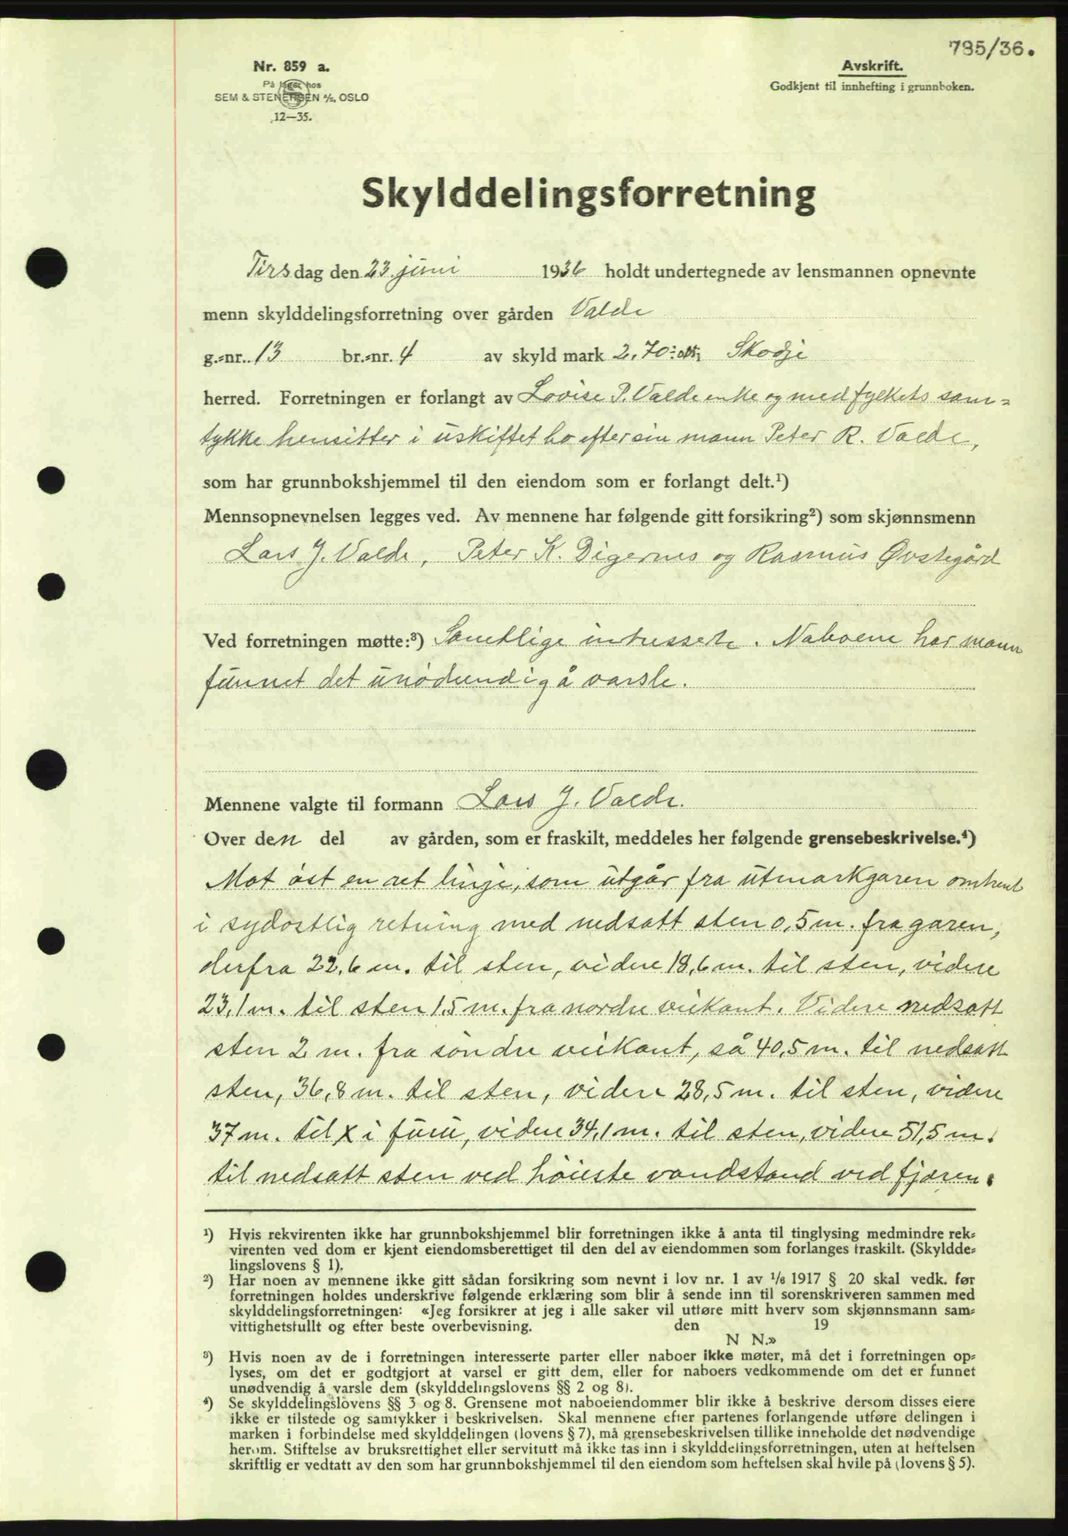 785/36.
Nr. 859 a.
På lager hos
SEM & STENERSEN A/S, OSLO
12—35.
Avskrift.
Godkjent til innhefting i grunnboken.
Skylddelingsforretning
Tirsdag den 23 juni 1936 holdt undertegnede av lensmannen opnevnte
menn skylddelingsforretning over gården Valde
g.-nr. 13 br.-nr. 4 av skyld mark 2,70 i Skodje
herred. Forretningen er forlangt av Lovise P. Valde enke og med fylkets sam=
tykke hensitter i uskiftet bo efter sin mann Peter R. Valde,
som har grunnbokshjemmel til den eiendom som er forlangt delt.¹)
Mennsopnevnelsen legges ved. Av mennene har følgende gitt forsikring²) som skjønnsmenn
Lars J. Valde, Peter K. Digernes og Rasmus Øvstegård
Ved forretningen møtte:³) Samtlige intresserte. Naboene har mann
funnet det unødvendig å varsle.
Mennene valgte til formann Lars J. Valde.
Over den del av gården, som er fraskilt, meddeles her følgende grensebeskrivelse.⁴)
Mot øst en ret linje, som utgår fra utmarkgaren omtrent
i sydøstlig retning med nedsatt sten 0,5 m. fra garen,
derfra 22,6 m. til sten, videre 18,6 m. til sten, videre
23,1 m. til sten 1,5 m. fra nordre veikant. Videre nedsatt
sten 2 m. fra søndre veikant, så 40,5 m. til nedsatt
sten, 36,8 m. til sten, videre 28,5 m. til sten, videre
37 m. til X i furu, videre 34,1 m. til sten, videre 51,5 m.
til nedsatt sten ved høieste vandstand ved fjæren.
¹) Hvis rekvirenten ikke har grunnbokshjemmel blir forretningen ikke å anta til tinglysing medmindre rek-
virenten ved dom er kjent eiendomsberettiget til den del av eiendommen som forlanges fraskilt. (Skyldde-
lingslovens § 1).
²) Har noen av mennene ikke gitt sådan forsikring som nevnt i lov nr. 1 av 1/6 1917 § 20 skal vedk. før
forretningen holdes underskrive følgende erklæring som blir å sende inn til sorenskriveren sammen med
skylddelingsforretningen: «Jeg forsikrer at jeg i alle saker vil utføre mitt hverv som skjønnsmann sam-
vittighetsfullt og efter beste overbevisning. den 19
N N.»
³) Hvis noen av de i forretningen interesserte parter eller naboer ikke møter, må det i forretningen op-
lyses, om det er godtgjort at varsel er gitt dem, eller for naboers vedkommende om det er funnet
unødvendig å varsle dem (skylddelingslovens §§ 2 og 8).
⁴) Se skylddelingslovens §§ 3 og 8. Grensene mot naboeiendommer blir ikke å beskrive dersom disses eiere
ikke er tilstede og samtykker i beskrivelsen. Skal mennene efter partenes forlangende utføre delingen i
marken i forbindelse med skylddelingen (lovens § 7), må grensebeskrivelsen tillike inneholde det nødvendige
herom. Stiftelse av bruksrettighet eller servitutt må ikke tas inn i skylddelingsforretningen, uten at heftelsen
skriftlig er vedtatt av den som har grunnbokshjemmel til den eiendom som heftelsen skal hvile på (lovens § 5).